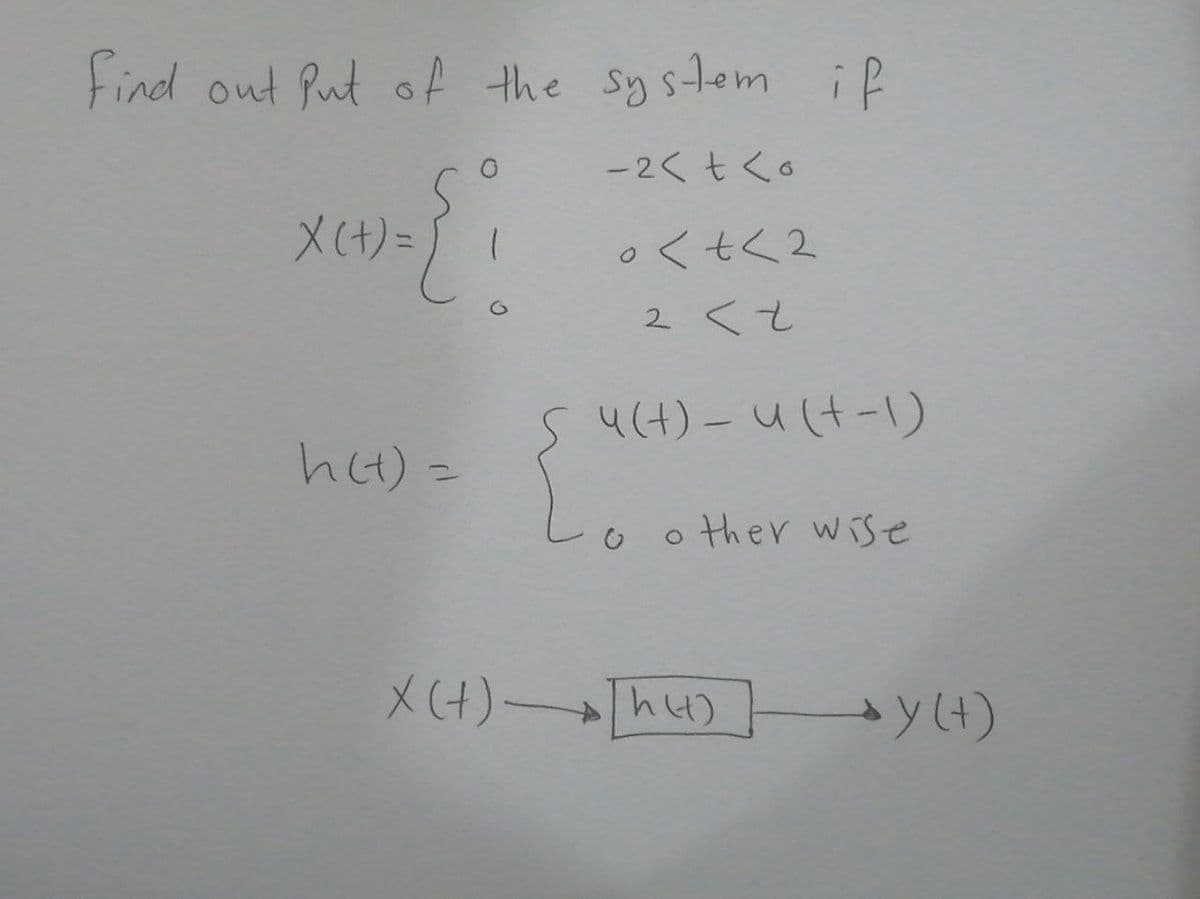 find out Put of the system if
0 -2< t <0
X(t)={ 1 0<t<2
0 2 <t
h(t) = { u(t) - u(t-1)
0 other wise
X(t) → h(t) → y(t)